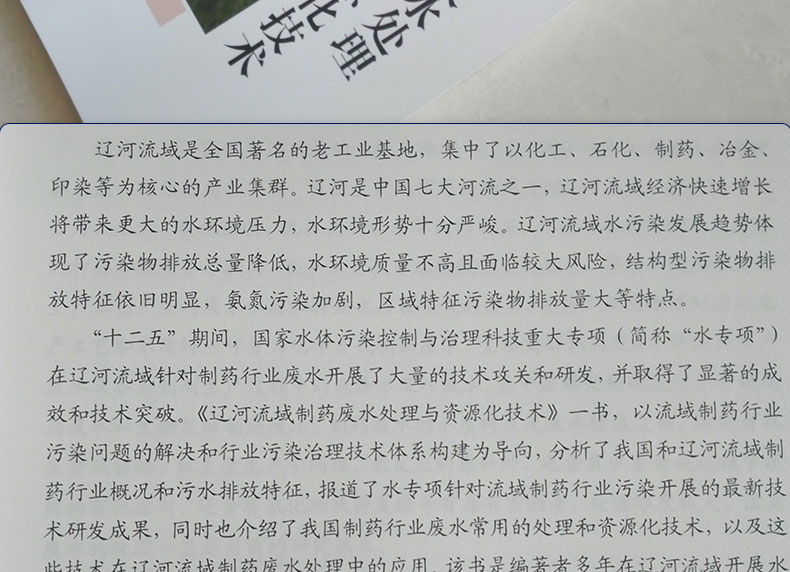 水处理
化技术
辽河流域是全国著名的老工业基地，集中了以化工、石化、制药、冶金、
印染等为核心的产业集群。辽河是中国七大河流之一，辽河流域经济快速增长
将带来更大的水环境压力，水环境形势十分严峻。辽河流域水污染发展趋势体
现了污染物排放总量降低，水环境质量不高且面临较大风险，结构型污染物排
放特征依旧明显，氨氮污染加剧，区域特征污染物排放量大等特点。
“十二五”期间，国家水体污染控制与治理科技重大专项（简称“水专项”）
在辽河流域针对制药行业废水开展了大量的技术攻关和研发，并取得了显著的成
效和技术突破。《辽河流域制药废水处理与资源化技术》一书，以流域制药行业
污染问题的解决和行业污染治理技术体系构建为导向，分析了我国和辽河流域制
药行业概况和污水排放特征，报道了水专项针对流域制药行业污染开展的最新技
术研发成果，同时也介绍了我国制药行业废水常用的处理和资源化技术，以及这
些技术在辽河流域制药废水处理中的应用。该书是编著者多年在辽河流域开展水